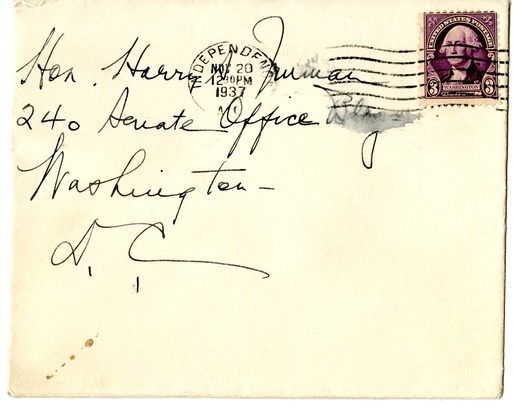 Hon. Harry Truman
240 Senate Office Bldg
Washington -
D. C.
INDEPENDEN
NOV 20
12 30PM
1937
MO.
UNITED STATES POSTAGE
3 WASHINGTON 3